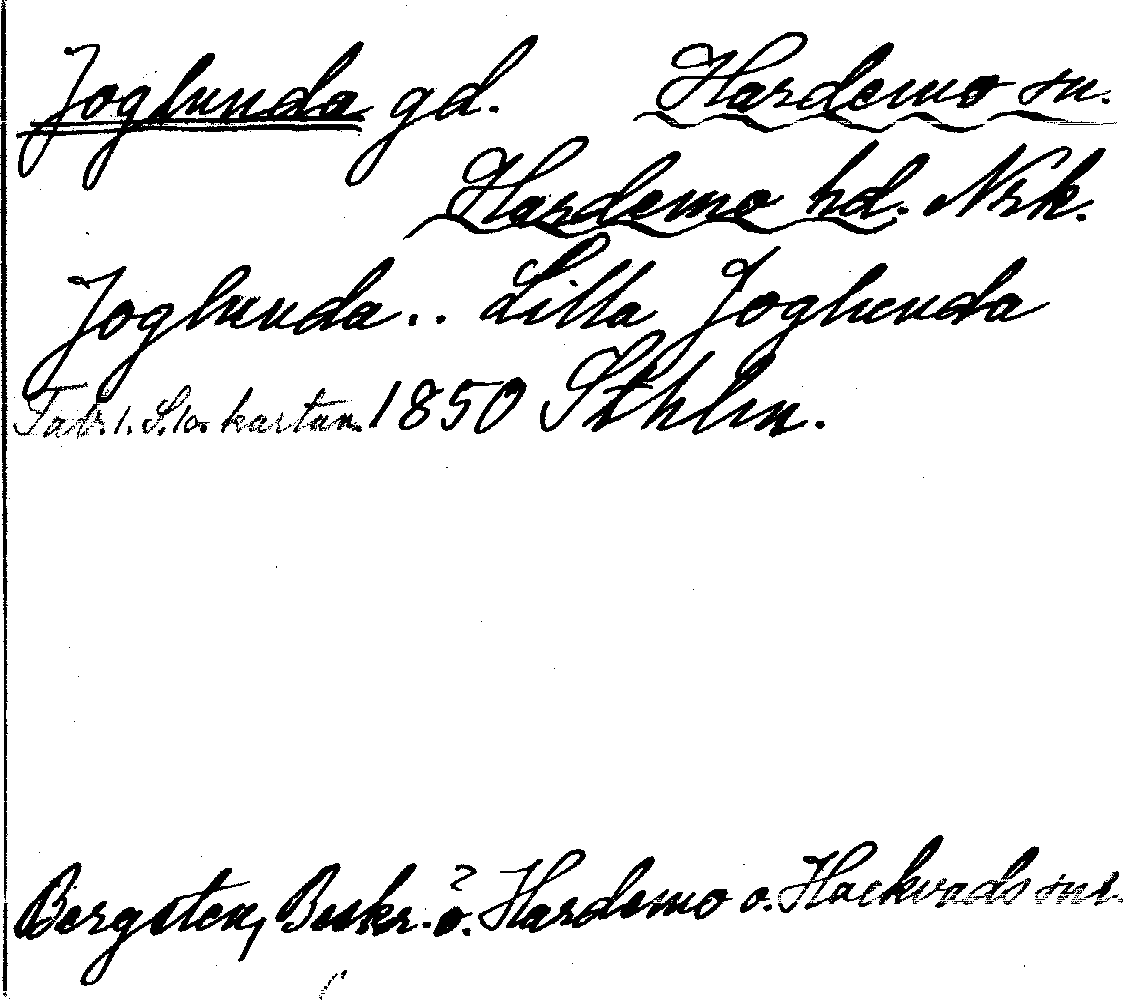 Joglunda gd. Hardemo sn.
Hardemo hd. Nrk.
Joglunda.. Lilla Joglunda
Tab. t. Sko. kartan. 1850 Sthlm.
Bergsten, Beskr. ö. Hardemo o. Hackvads snr.